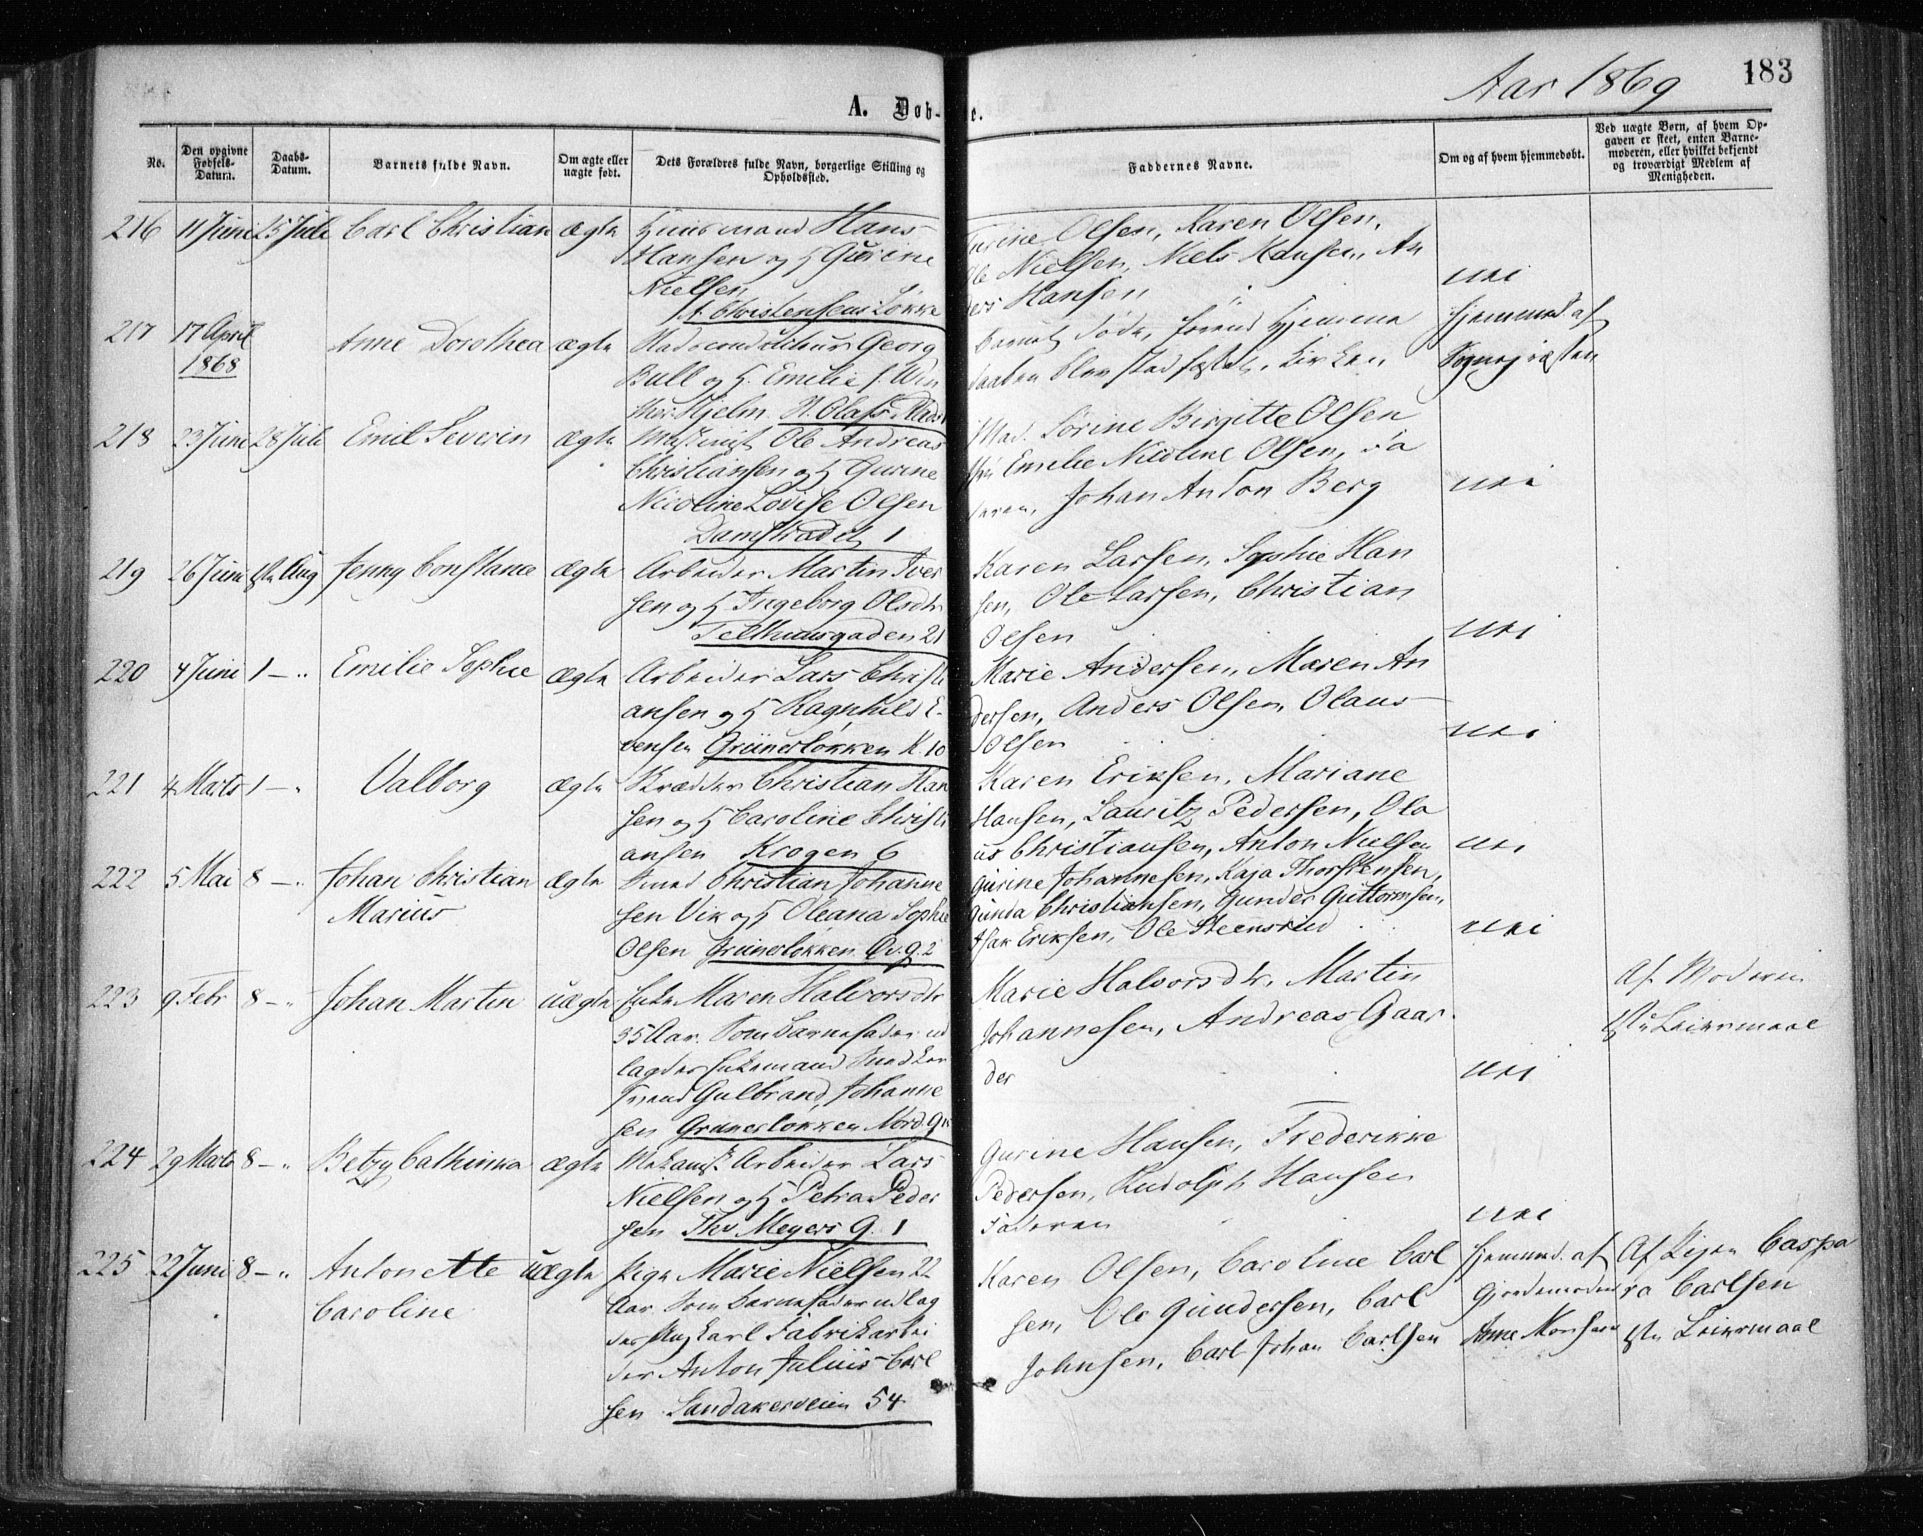 Aar 1869
183
A. Døb-
e.
No.
Den opgivne Fødsels-Datum.
Daabs-Datum.
Barnets fulde Navn.
Om ægte eller uægte født.
Dets Forældres fulde Navn, borgerlige Stilling og Opholdssted.
Faddernes Navne.
Om og af hvem hjemmedøbt.
Ved uægte Børn, af hvem Opgaven er skeet, enten Barnemoderen, eller hvilket bekjendt og troværdigt Medlem af Menigheden.
216 11 Juni 25 Juli Carl Christian ægte Huusmand Hans
Hansen og H Gurine
Nielsen
Christensens Løkke
Olsen, Karen Olsen,
Ole Nielsen, Niels Hansen, An
ders Hansen
nei
217 17 April
1868
Anne Dorothea ægte Stadsconducteur Georg
Bull og H. Emilie f. Win
ther Hjelm. St. Olafs Plads 1
Barnet døde, førend Hjemme
daaben blev stadfæstet i Kirken
Hjemmed af
Sognepræsten
218 23 Juni 28 Juli Emil Severin ægte Maskinist Ole Andreas
Christiansen og H Gurine
Nicoline Lovise Olsen
Damstrædet 1
Mad. Sørine Birgitte Olsen
Emelie Nicoline Olsen, Fa
deren, Johan Anton Berg
nei
219 26 Juni 1ste Aug Jenny Constance ægte Arbeider Martin Iver
sen og H Ingeborg Olsdtr
Telthusgaden 21
Karen Larsen, Sophie Han
sen, Ole Larsen, Christian
Olsen
nei
220 4 Juni 1 - " Emilie Sophie ægte Arbeider Lars Christi
ansen og H Ragnhild E-
vensen Grünerløkken K. 10
Marie Andersen, Maren An
dersen, Anders Olsen, Olaus
Olsen
nei
221 4 Marts 1 - " Valborg ægte Skrædder Christian Han
sen og H Caroline Christi
ansen Krogen 6
Karen Eriksen, Mariane
Hansen, Lauritz Pedersen, Ola
us Christiansen, Anton Nielsen
nei
222 5 Mai 8 - " Johan Christian
Marius
ægte Smed Christian Johanne
sen Vik og H Oleana Sophie
Olsen Grünerløkken Ov. g. 2
Gurine Johannesen, Kaja Thorstensen,
Gunda Christiansen, Gunder Guttormsen,
Isak Eriksen, Ole Steensrud
nei
223 9 Febr 8 - " Johan Martin uægte Enke Maren Halvorsdtr
35 Aar. Som Barnefader ud
lagdes Enkemand Smed
Gulbrand Johanne
sen Grünerløkken Nord. G
Marie Halvorsdtr, Martin
Johannesen, Andreas Gaar
der
nei
Af Moderen
1ste Leiermaal
224 29 Marts 8 - " Betzy Cathinka ægte Mekanisk Arbeider Lars
Nielsen og H Petra Peder
sen Thv. Meyers G. 1
Gurine Hansen, Frederikke
Pedersen, Rudolph Hansen
Faderen
nei
225 22 Juni 8 - " Antonette
Caroline
uægte Pige Marie Nielsen 22
Aar. Som Barnefader udlag
des Ungkarl Fabrikarbei
der Anton Julius Carl
sen Sandakerveien 54
Karen Olsen, Caroline Carl
sen, Ole Gundersen, Carl
Johnsen, Carl Johan Carlsen
Hjemmed. af
Gjordemoder
Anne Monsen
Af Pigen Caspa
ra Carlsen
1ste Leiermaal